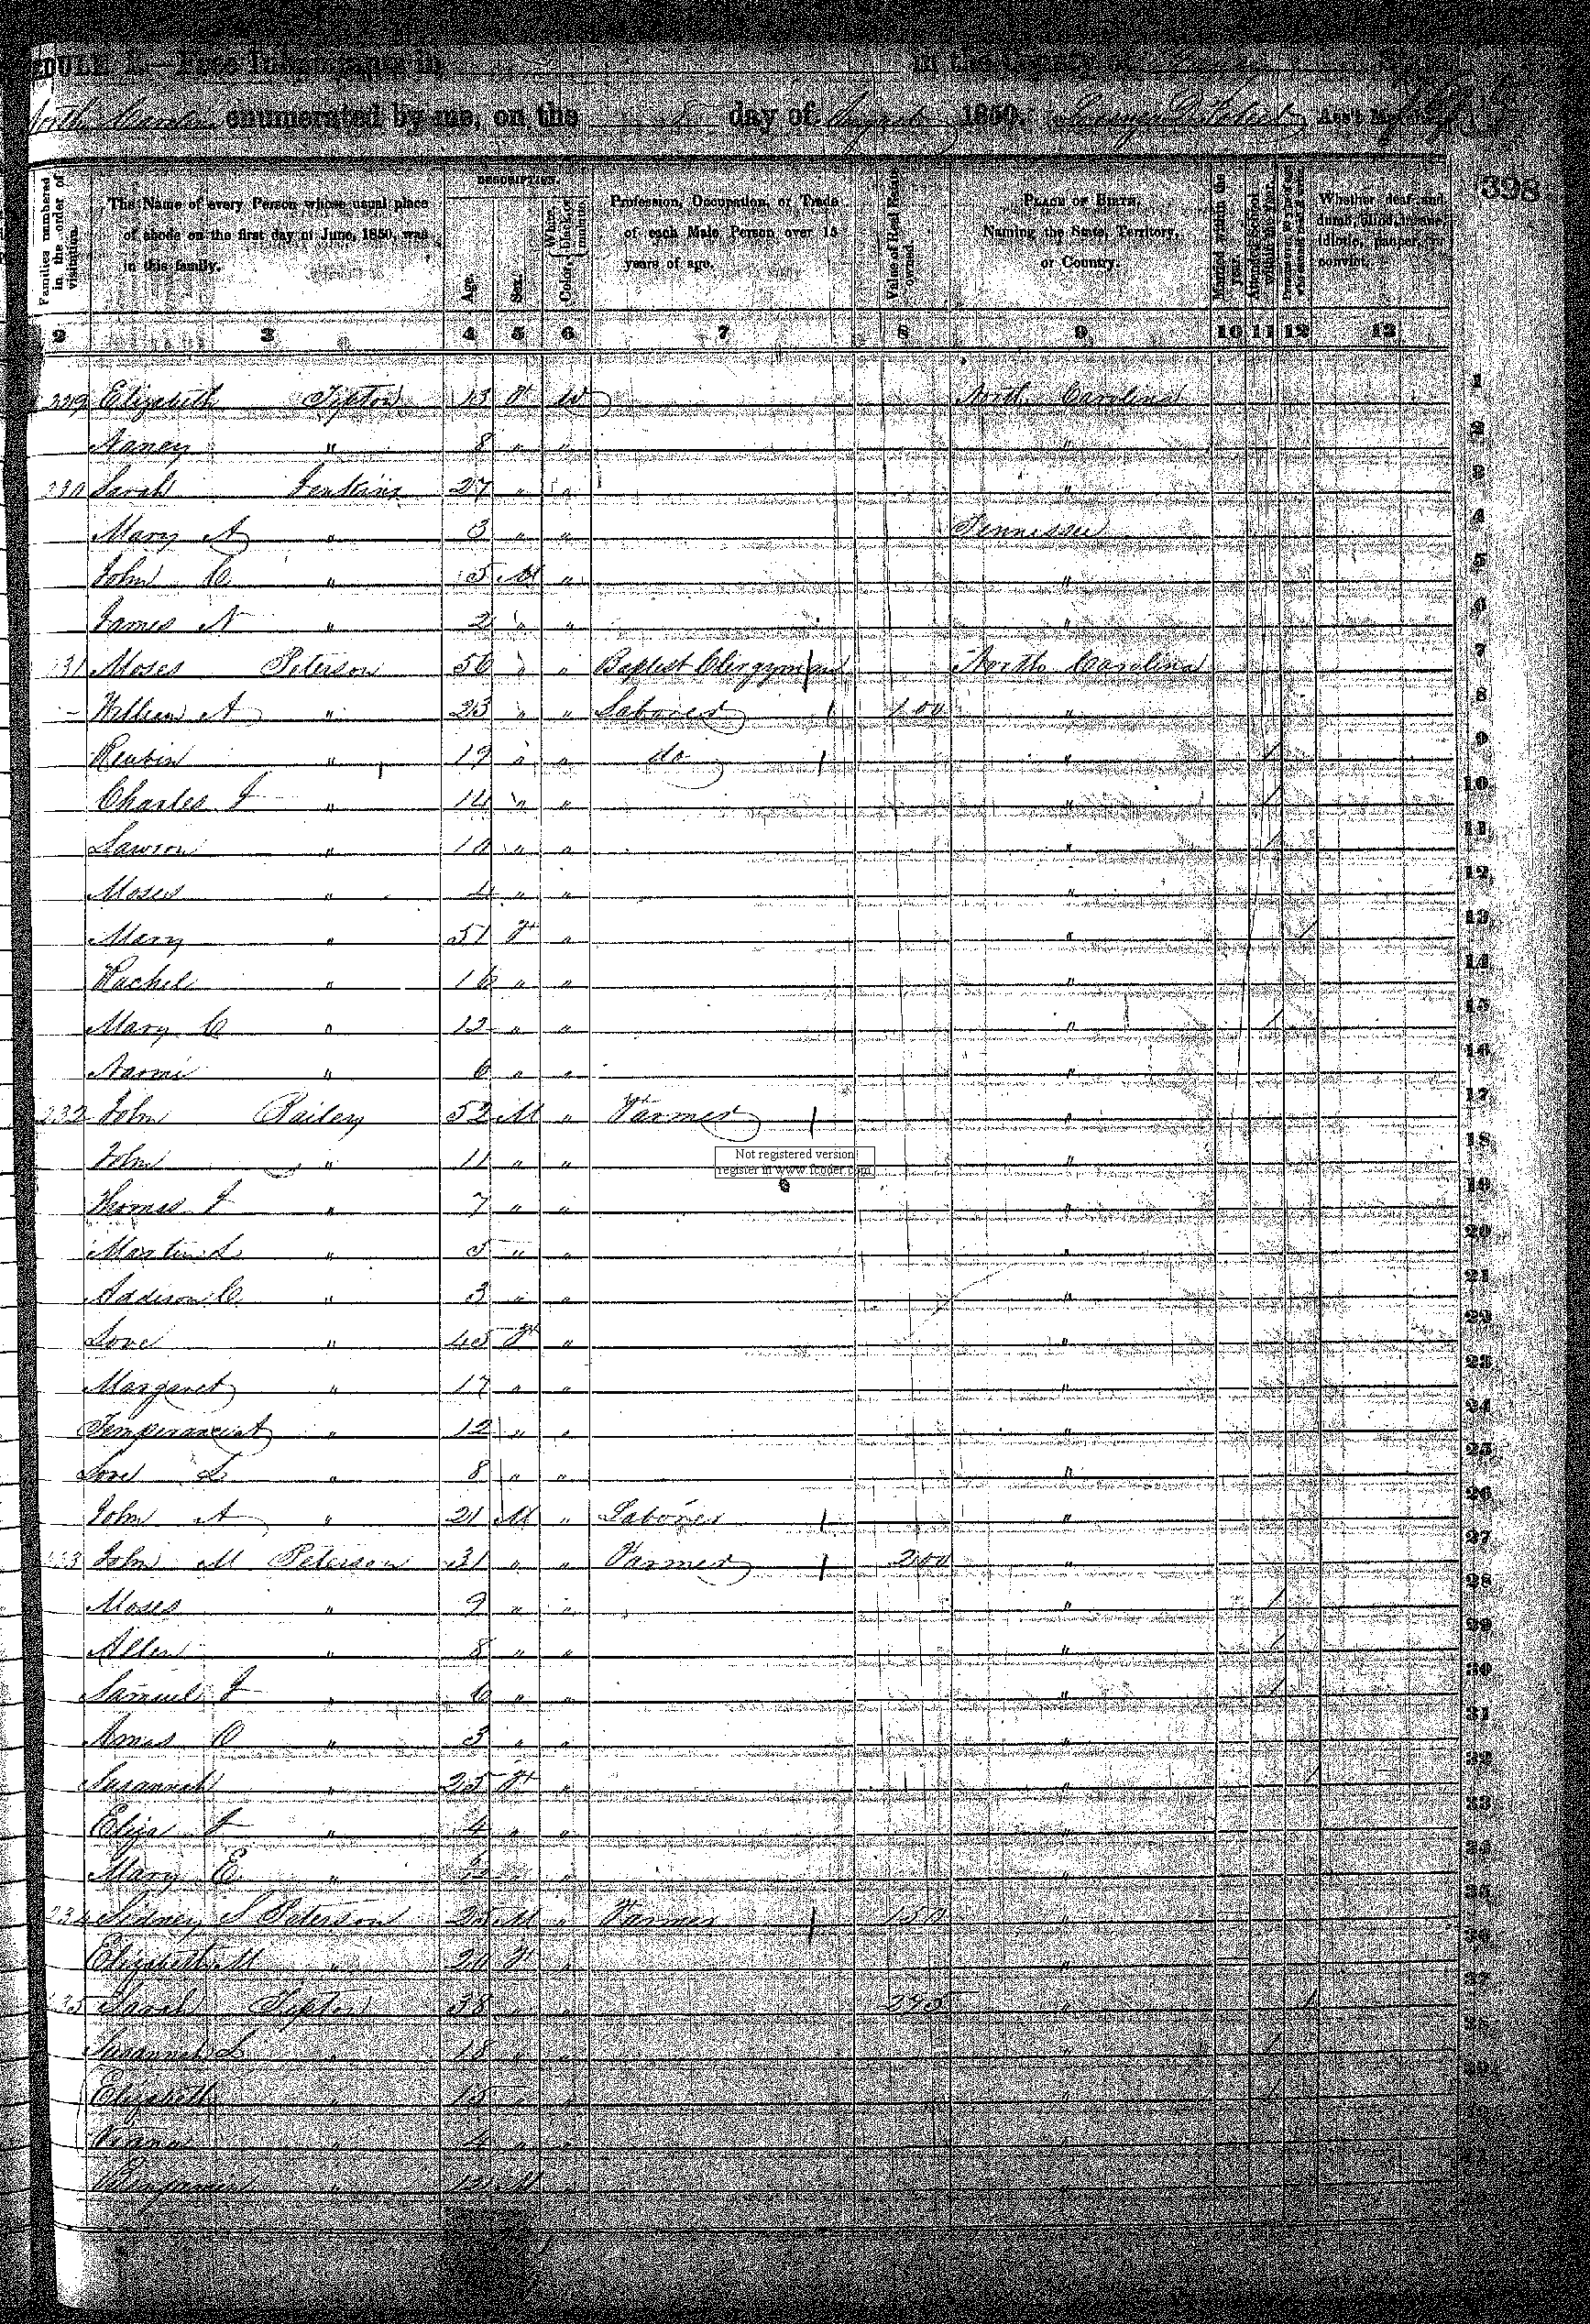 EDULE I.—Free Inhabitants in in the County of
North Carolina enumerated by me, on the day of August 1850. Ass't Mar
398
Families numbered in the order of visitation.
The Name of every Person whose usual place of abode on the first day of June, 1850, was in this family.
DESCRIPTION.
Age.
Sex.
Color, White, black, or mulatto.
Profession, Occupation, or Trade of each Male Person over 15 years of age.
Value of Real Estate owned.
PLACE OF BIRTH, Naming the State, Territory, or Country.
Married within the year.
Attended School within the year.
Whether deaf and dumb, blind, insane, idiotic, pauper, or convict.
2 3 4 5 6 7 8 9 10 11 12 13
229 Elizabeth Tipton 13 F W North Carolina 1
Nancy " 8 " " " 2
230 Sarah Jenkins 27 " " " 3
Mary A " 3 " " Tennessee 4
John C " 5 M " " 5
James N " 2 " " " 6
231 Moses Peterson 56 " " Baptist Clergyman North Carolina 7
William A " 23 " " Laborer 100 " 8
Reubin " 19 " " do " / 9
Charles J " 14 " " " / 10
Lawson " 10 " " " / 11
Moses " 4 " " " 12
Mary " 51 F " " / 13
Rachel " 16 " " " 14
Mary C " 12 " " " / 15
Naomi " 6 " " " 16
232 John Bailey 52 M " Farmer " 17
John " 11 " " " 18
Not registered version
register in www.fcoder.com
Thomas J " 7 " " " 19
Martin L " 5 " " " 20
Addison C " 3 " " " 21
Love " 45 F " " 22
Margaret " 17 " " " 23
Temperance A " 12 " " " 24
Love L " 8 " " " 25
John A " 21 M " Laborer " 26
233 John M Peterson 31 " " Farmer 200 " 27
Moses " 9 " " " / 28
Allen " 8 " " " / 29
Samuel J " 6 " " " / 30
Amos O " 3 " " " 31
Susannah " 25 F " " / 32
Eliza J " 4 " " " 33
Mary E " " " " 34
234 Sidney S Peterson 25 M " Farmer 150 " 35
Elizabeth M " 20 F " " 36
235 Sarah Tipton 38 " " 245 " / 37
Susannah L " 18 " " " / 38
Elizabeth " 15 " " " 39
" 4 " "
Benjamin " 12 M "